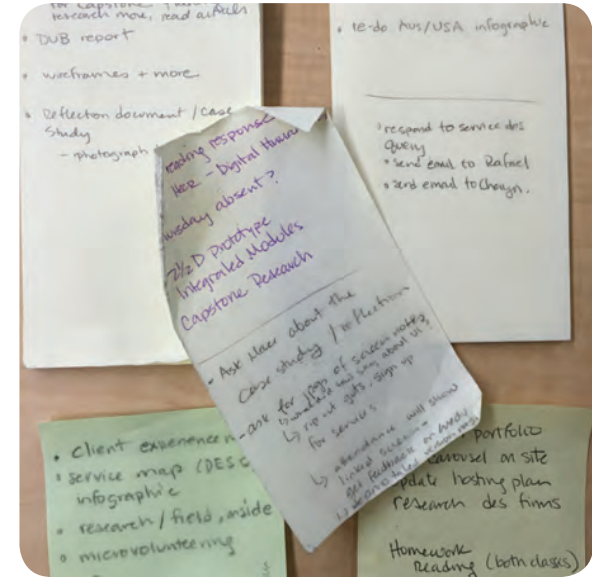 for Capstone
research more, read articles
• DUB report
• wireframes + more
• Reflection document / Case
Study
- photograph
• re-do Aus/USA infographic
• respond to service des
query
• send email to Rafael
• send email to
reading response
- Digital
absent?
2½ D prototype
Integrated Modules
Capstone Research
• Ask about the
case study / reflection
- ask for jpgs of screen notes,
↳ rip out guts, sign up
for servers
↳ attendance will show
linked screens -
get feedback on
• client experience
• service map (DESC
infographic
• research / field, inside
• microvolunteering
portfolio
carousel on site
update hosting plan
research des firms
Homework
Reading (both classes)